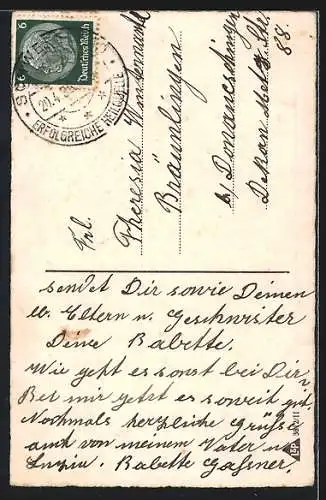 6 Deutsches Reich 6
20.4.
ERFOLGREICHE HEILQUELLE
Frl.
Theresia
Bräunlingen
b/ Donaueschingen
Dekan Metz Str.
88.
sendet Dir sowie Deinen
lb. Eltern u. Geschwister
Deine Babette.
Wie geht es sonst bei Dir?
Bei mir geht es soweit gut.
Nochmals herzliche Grüße
auch von meinem Vater u.
Babette Gassner.